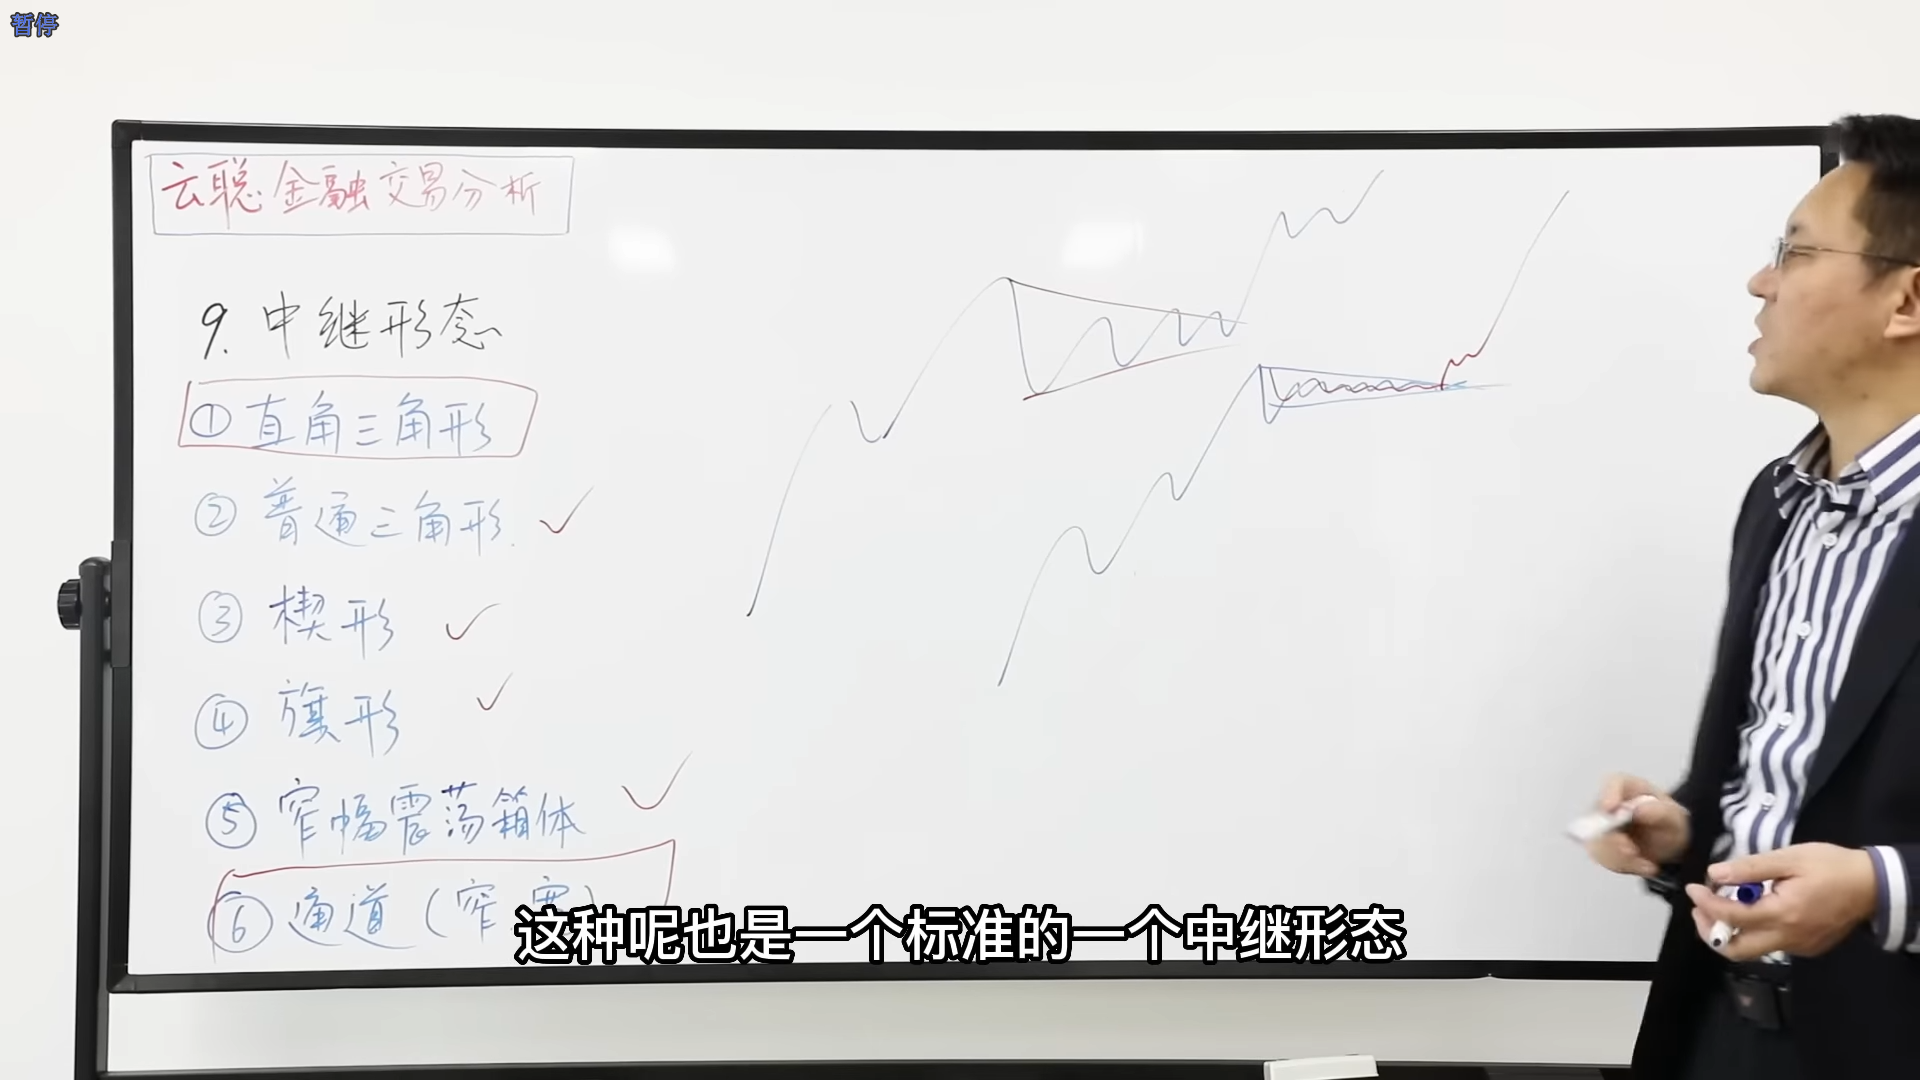 暂停
云聪金融交易分析
9. 中继形态
① 直角三角形
② 普通三角形
③ 楔形
④ 旗形
⑤ 窄幅震荡箱体
⑥ 通道(窄 宽)
这种呢也是一个标准的一个中继形态